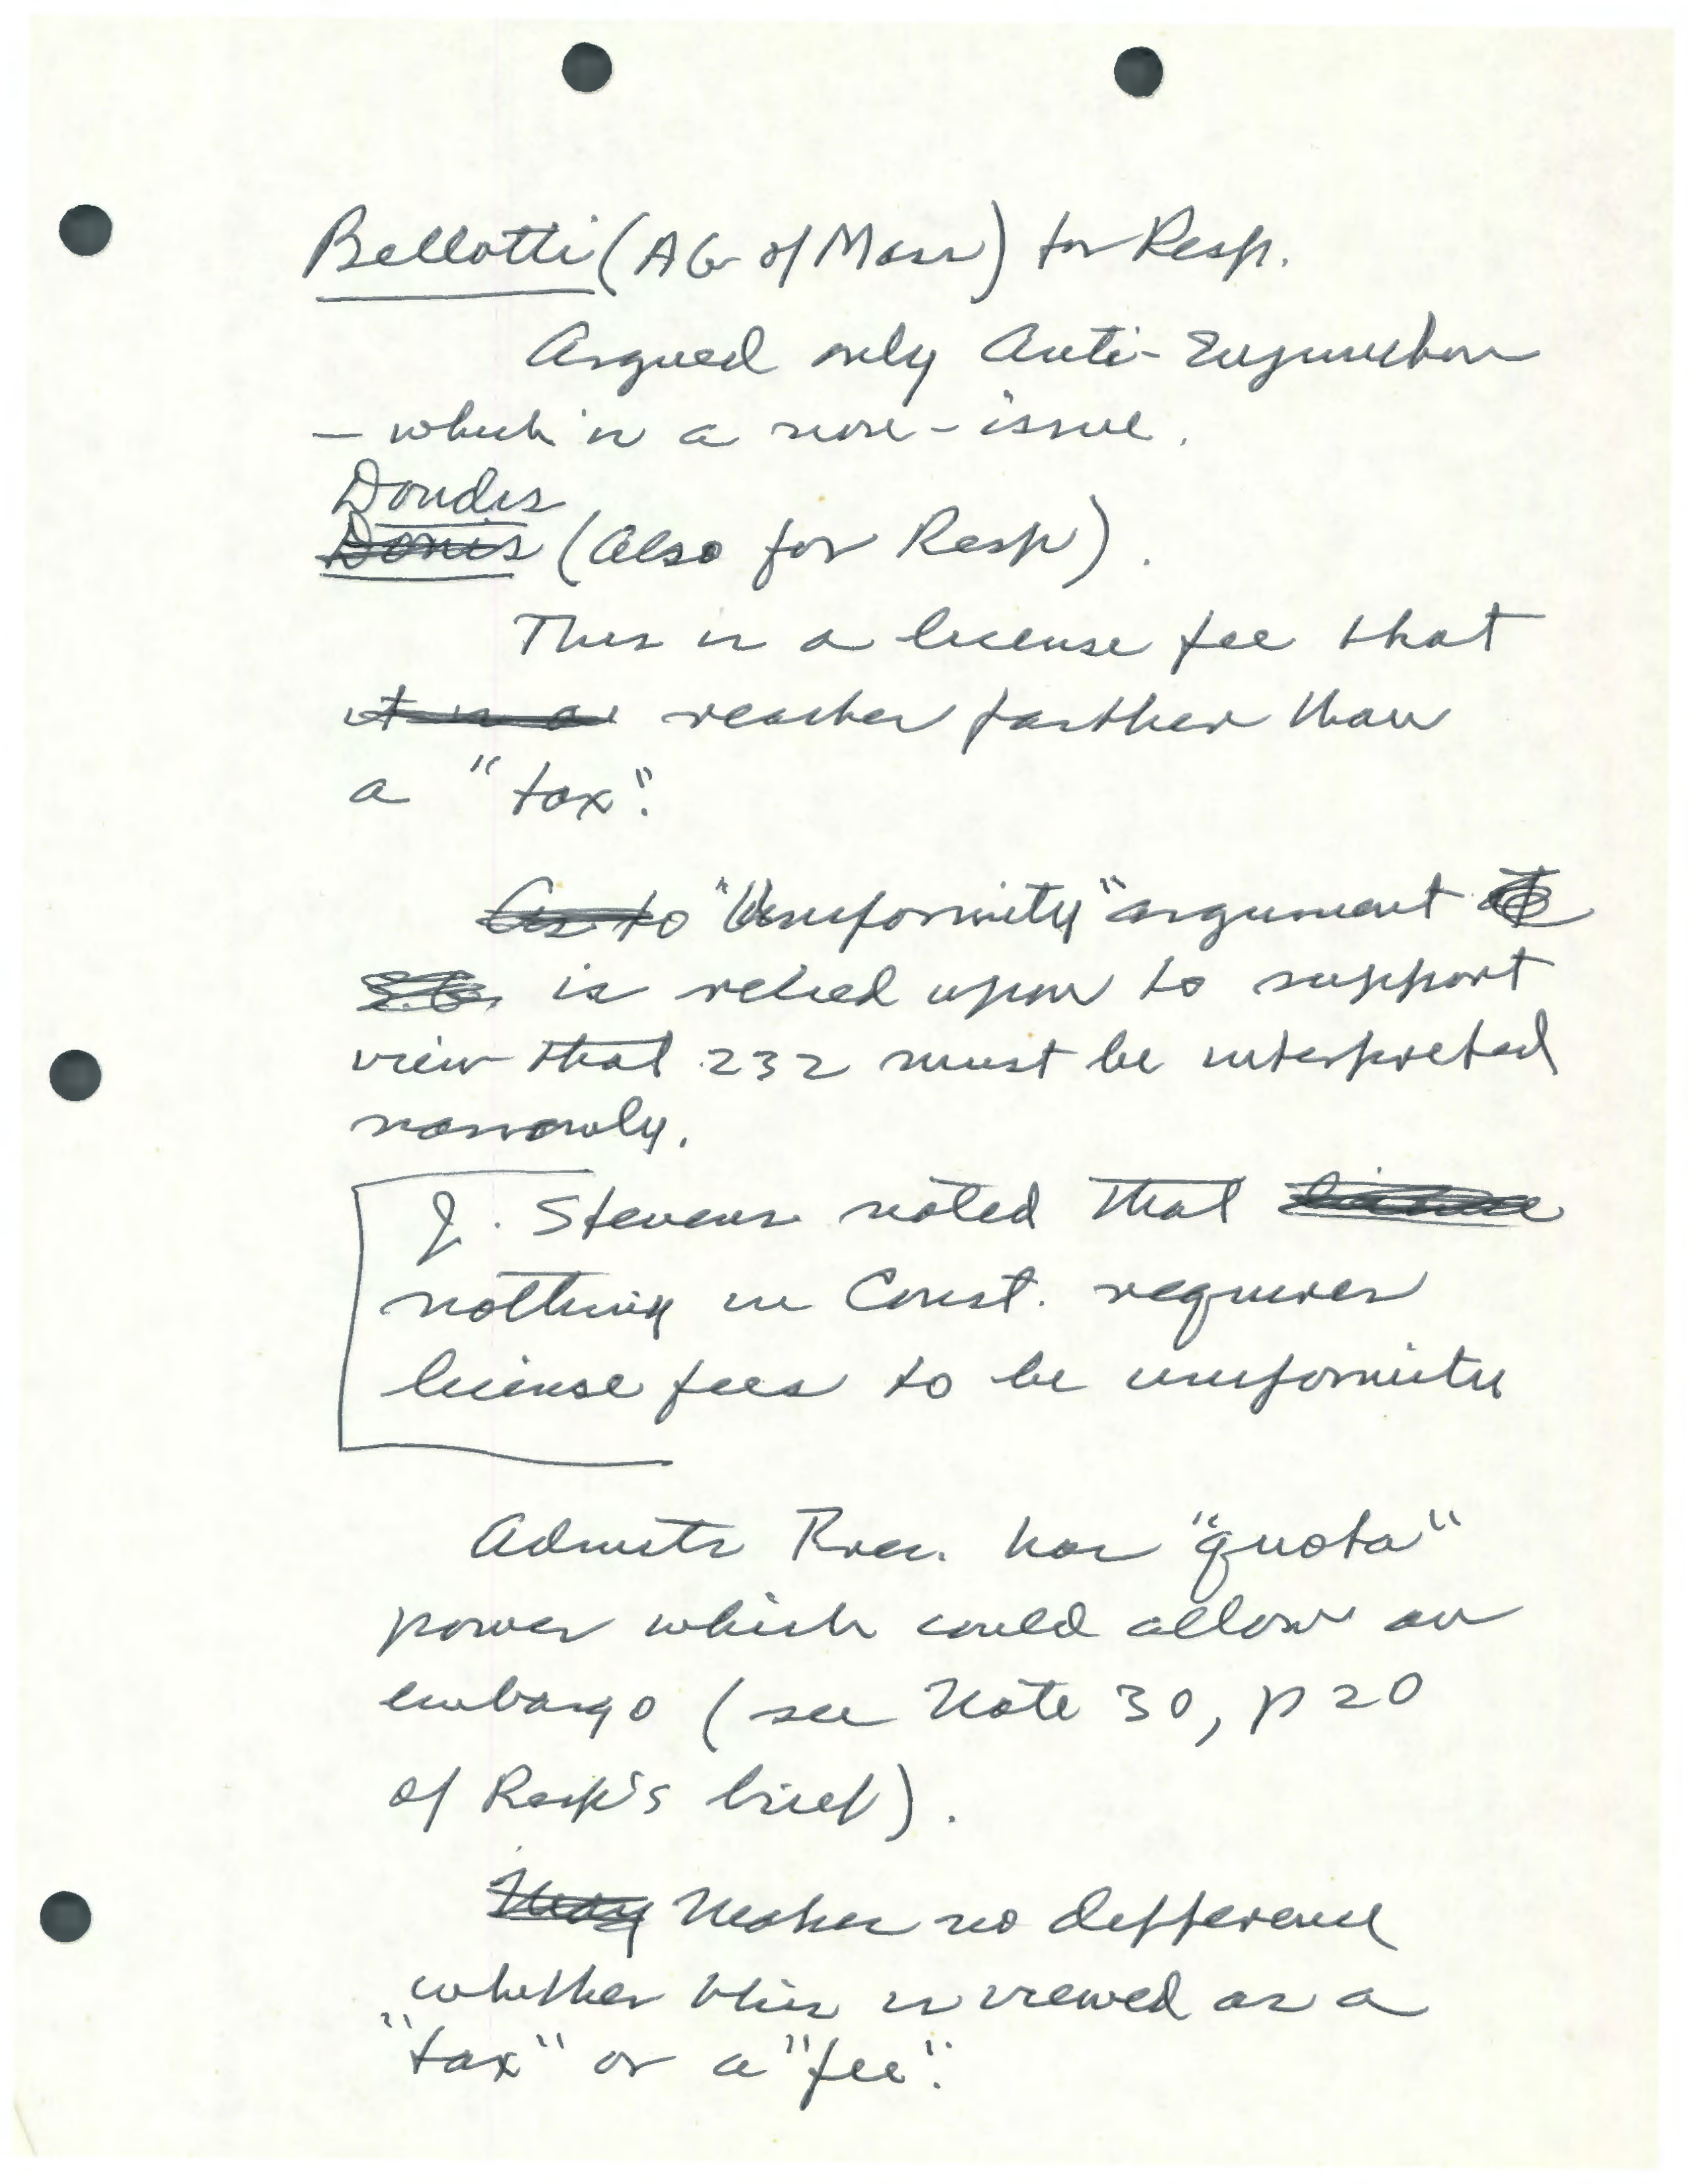 Bellotti (AG of Mass) for Resp.
Argued only Anti-Injunction
— which is a non-issue.
Doudis
Donis (Also for Resp).
This is a license fee that
it is a reaches farther than
a "tax".
As to "Uniformity" argument
is relied upon to support
view that 232 must be interpreted
narrowly.
J. Stevens noted that
nothing in Const. requires
license fees to be uniformity
Admits Pres. has "quota"
power which could allow an
embargo (see Note 30, p 20
of Resp's brief).
May Makes no difference
whether this is viewed as a
"tax" or a "fee".